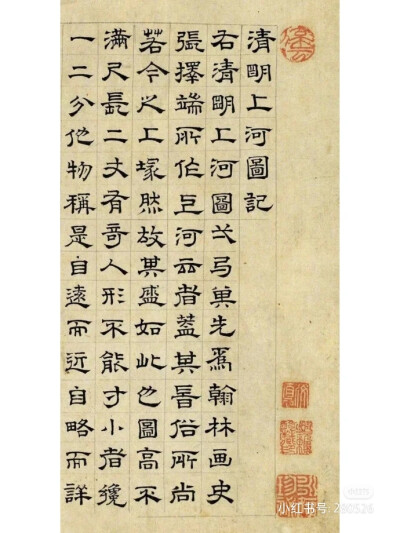 清明上河圖記
右清明上河圖弌弓先爲翰林画史
張擇端所作上河云者蓋其旹俗所尚
若今之上塚然故其盛如此也圖高不
滿尺長二丈有奇人形不能寸小者纔
一二分他物稱是自遠而近自略而詳
小红书号 260526